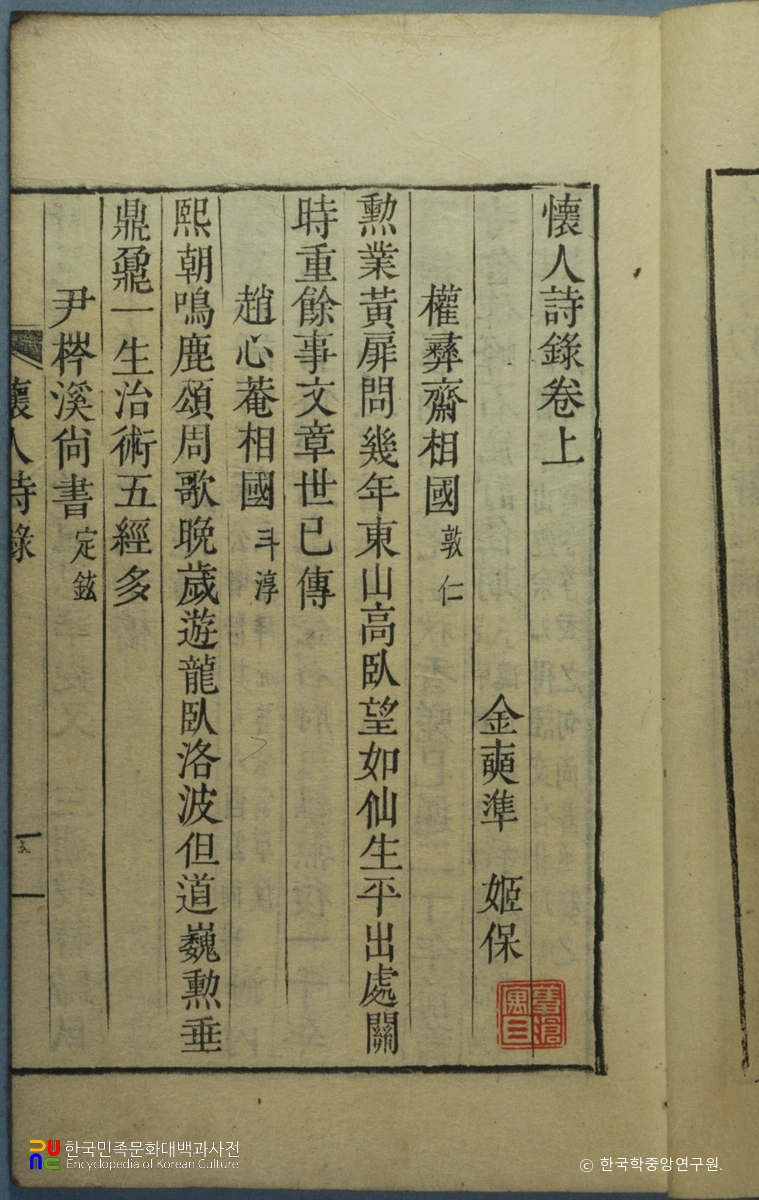 懷人詩錄卷上
金奭準 姬保
權彝齋相國 敦仁
勲業黃扉問幾年東山高臥望如仙生平出處關
時重餘事文章世已傳
趙心菴相國 斗淳
熙朝鳴鹿頌周歌晩歲遊龍臥洛波但道巍勲垂
鼎鼐一生治術五經多
尹梣溪尙書 定鉉
懷人詩錄
한국민족문화대백과사전
Encyclopedia of Korean Culture
© 한국학중앙연구원.